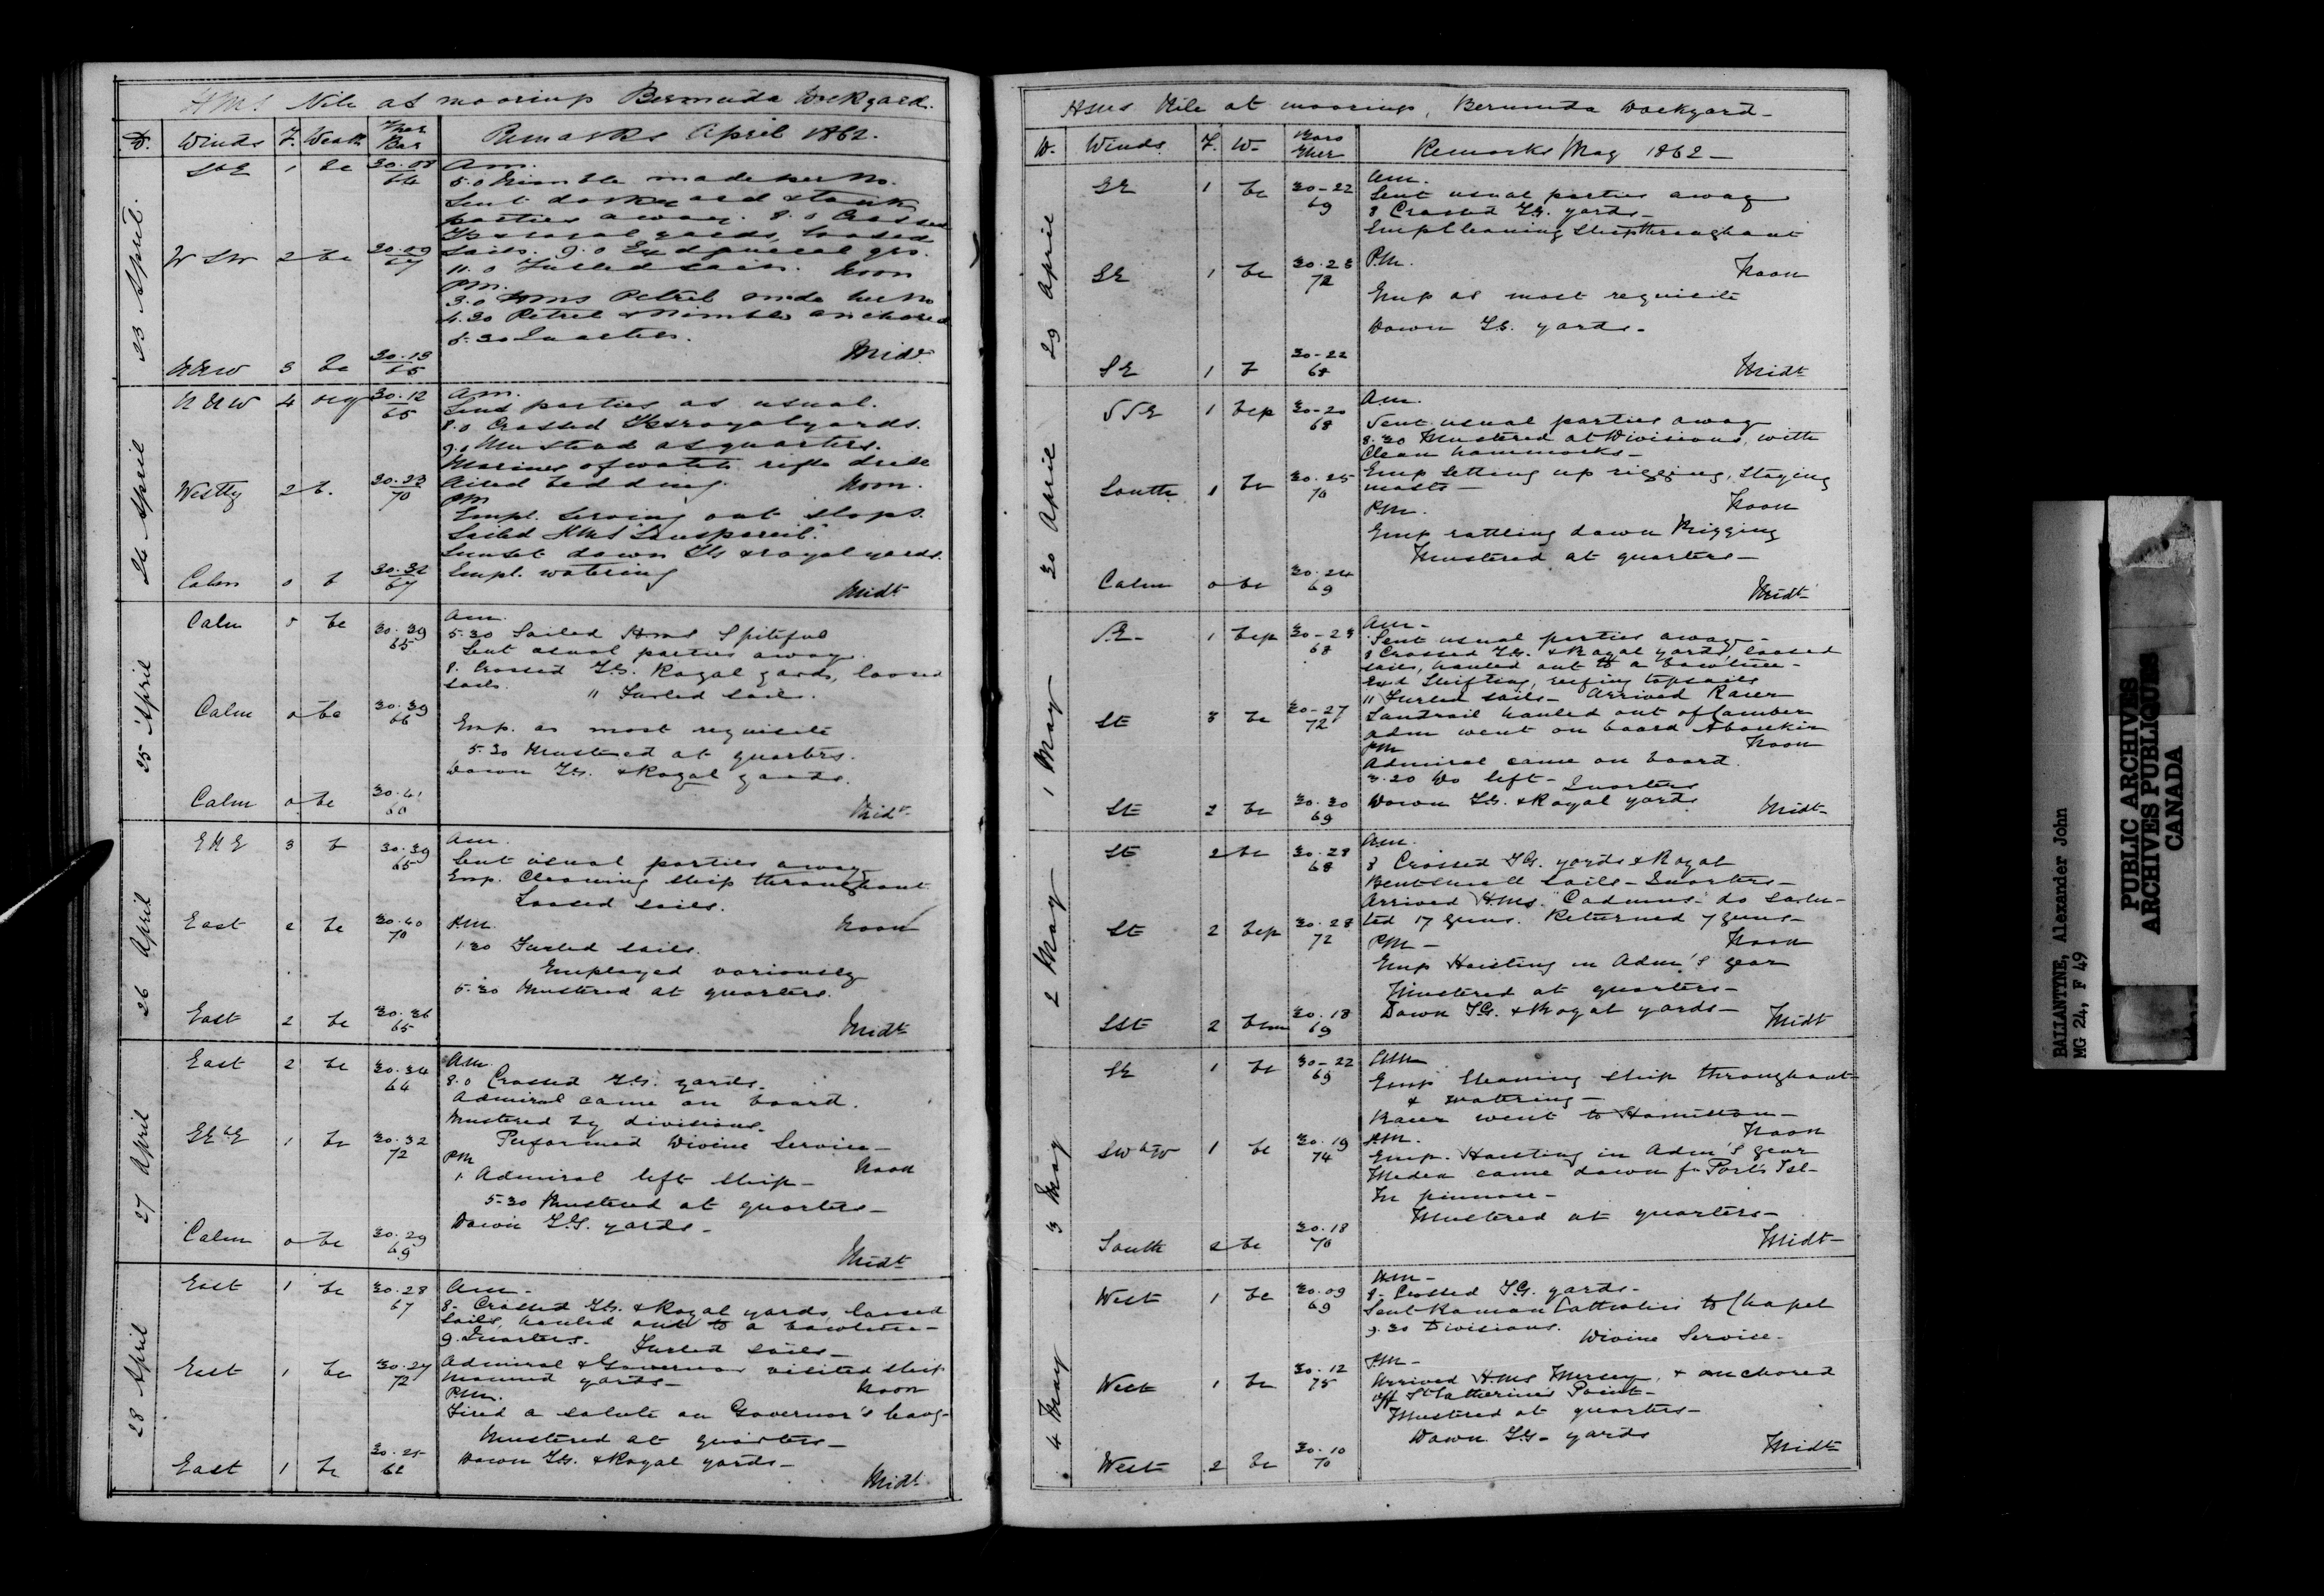 HMS Nile at moorings Bermuda Dockyard.
D. Winds F. Weath Ther Bar Remarks April 1862.
23 April.
SbE 1 bc 30.08 66
Am.
5.0 Nimble made her No.
Sent dockyard & tank
parties away. 8.0 Crossed
TG & royal yards, loosed
W SW 2 bc 30.09 67
sails. 9.0 Exd general qrs.
11.0 Furled sails. Noon
PM.
3.0 HMS Petrel made her No
4.30 Petrel & Nimble anchored
5.30 Quarters.
NNW 3 bc 30.13 65
Midt.
24 April
NNW 4 ocq 30.12 65
Am.
Sent parties as usual.
8.0 Crossed TG & royal yards.
9.0 Mustered at quarters.
Marines of watch rifle drill
Westly 2 b. 30.23 70
Aired bedding. Noon.
PM
Empl. serving out slops.
Sailed HMS Sanspareil.
Sunset down TG & royal yards.
Calm 0 b 30.32 67
Empl. watering
Midt
25 April
Calm 0 bc 30.39 65
Am.
5.30 Sailed HMS Spiteful
Sent usual parties away.
8. Crossed T.G. Royal yards, loosed
sails. 11 Furled sails.
Calm 0 bc 30.39 66
Emp. as most requisite
5.30 Mustered at quarters.
Down T.G. & Royal yards.
Calm 0 bc 30.41
Midt.
26 April
ENE 3 b 30.39 65
Am.
Sent usual parties away
Emp. Cleaning Ship throughout
Loosed sails.
East 2 bc 30.40 70
P.M. Noon
1.30 Furled sails.
Employed variously
5.30 Mustered at quarters.
East 2 bc 30.36 65
Midt
27 April
East 2 bc 30.34 64
A.M.
8.0 Crossed T.G. yards.
Admiral came on board.
Mustered by divisions.
SEbE 1 bc 30.32 72
Performed Divine Service -
PM Noon
1. Admiral left ship -
5.30 Mustered at quarters -
Down T.G. yards -
Calm 0 bc 30.29 69
Midt
28 April
East 1 bc 30.28 67
Am -
8 - Crossed T.G. & Royal yards, loosed
sails, hauled out to a bowline -
9. Quarters. Furled sails -
East 1 bc 30.27 72
Admiral & Governor visited ship
Manned yards - Noon
P.M.
Fired a salute on Governor's leavg -
Mustered at quarters -
East 1 bc 30.25
Down T.G. & Royal yards -
Midt
HMS Nile at moorings, Bermuda Dockyard -
D. Winds. F. W. Baro Ther Remarks May 1862 -
29 April
SE 1 bc 30-22 69
am.
Sent usual parties away
8 Crossed T.G. yards -
Emp Cleaning Ship throughout
SE 1 bc 30.23 72
P.M. Noon
Emp as most requisite
Down T.G. yards -
SE 1 b 30-22 68
Midt
30 April
SSE 1 bcp 30-20 68
A.m.
Sent usual parties away
8.30 Mustered at Divisions, with
Clean hammocks -
South 1 bc 30.25 70
Emp Setting up rigging, Staying
masts -
P.M. Noon
Emp rattling down Rigging
Mustered at quarters -
Calm 0 bc 30.24 69
Midt -
1 May
SE - 1 bcp 30-28 68
Am -
Sent usual parties away -
8 Crossed T.G. & Royal yards, loosed
sails, hauled out to a bowline -
Exd Shifting, reefing topsails
11 Furled sails - Arrived Racer
SE 3 bc 30-27 72
Landrail hauled out of Camber
Adm went on board Aboukir
PM Noon
Admiral came on board.
3.20 Do left - Quarters
SE 2 bc 30.30 69
Down T.G. & Royal yards
Midt -
2 May
SE 2 bc 30.28 68
Am.
8 Crossed T.G. yards & Royal
Bent small sails - Quarters -
Arrived HMS. Cadmus - do salu -
SE 2 bcp 30.28 72
ted 17 guns. Returned 7 guns -
P.M - Noon
Emp Hoisting in Adm's gear
Mustered at quarters -
SSE 2 bcm 30.18 69
Down T.G. & Royal yards - Midt
3 May
SE 1 bc 30-22 69
AM
Emp Cleaning ship throughout
& watering -
Racer went to Hamilton -
SWbW 1 bc 30.19 74
P.M. Noon
Emp. Hoisting in Adm's gear
Medea came down fr Ports Isl -
In pinnace -
Mustered at quarters -
South 2 bc 30.18 70
Midt -
4 May
West 1 bc 30.09 69
AM -
8 - Crossed T.G. yards -
Sent Roman Catholics to Chapel
9.30 Divisions. Divine Service -
West 1 bc 30.12 75
P.M -
Arrived H.M.S Mersey, & anchored
off St Catherine's Point -
Mustered at quarters -
Down T.G. yards
West 2 bc 30.10 70
Midt
BALLANTYNE, Alexander John
MG 24, F 49
PUBLIC ARCHIVES
ARCHIVES PUBLIQUES
CANADA